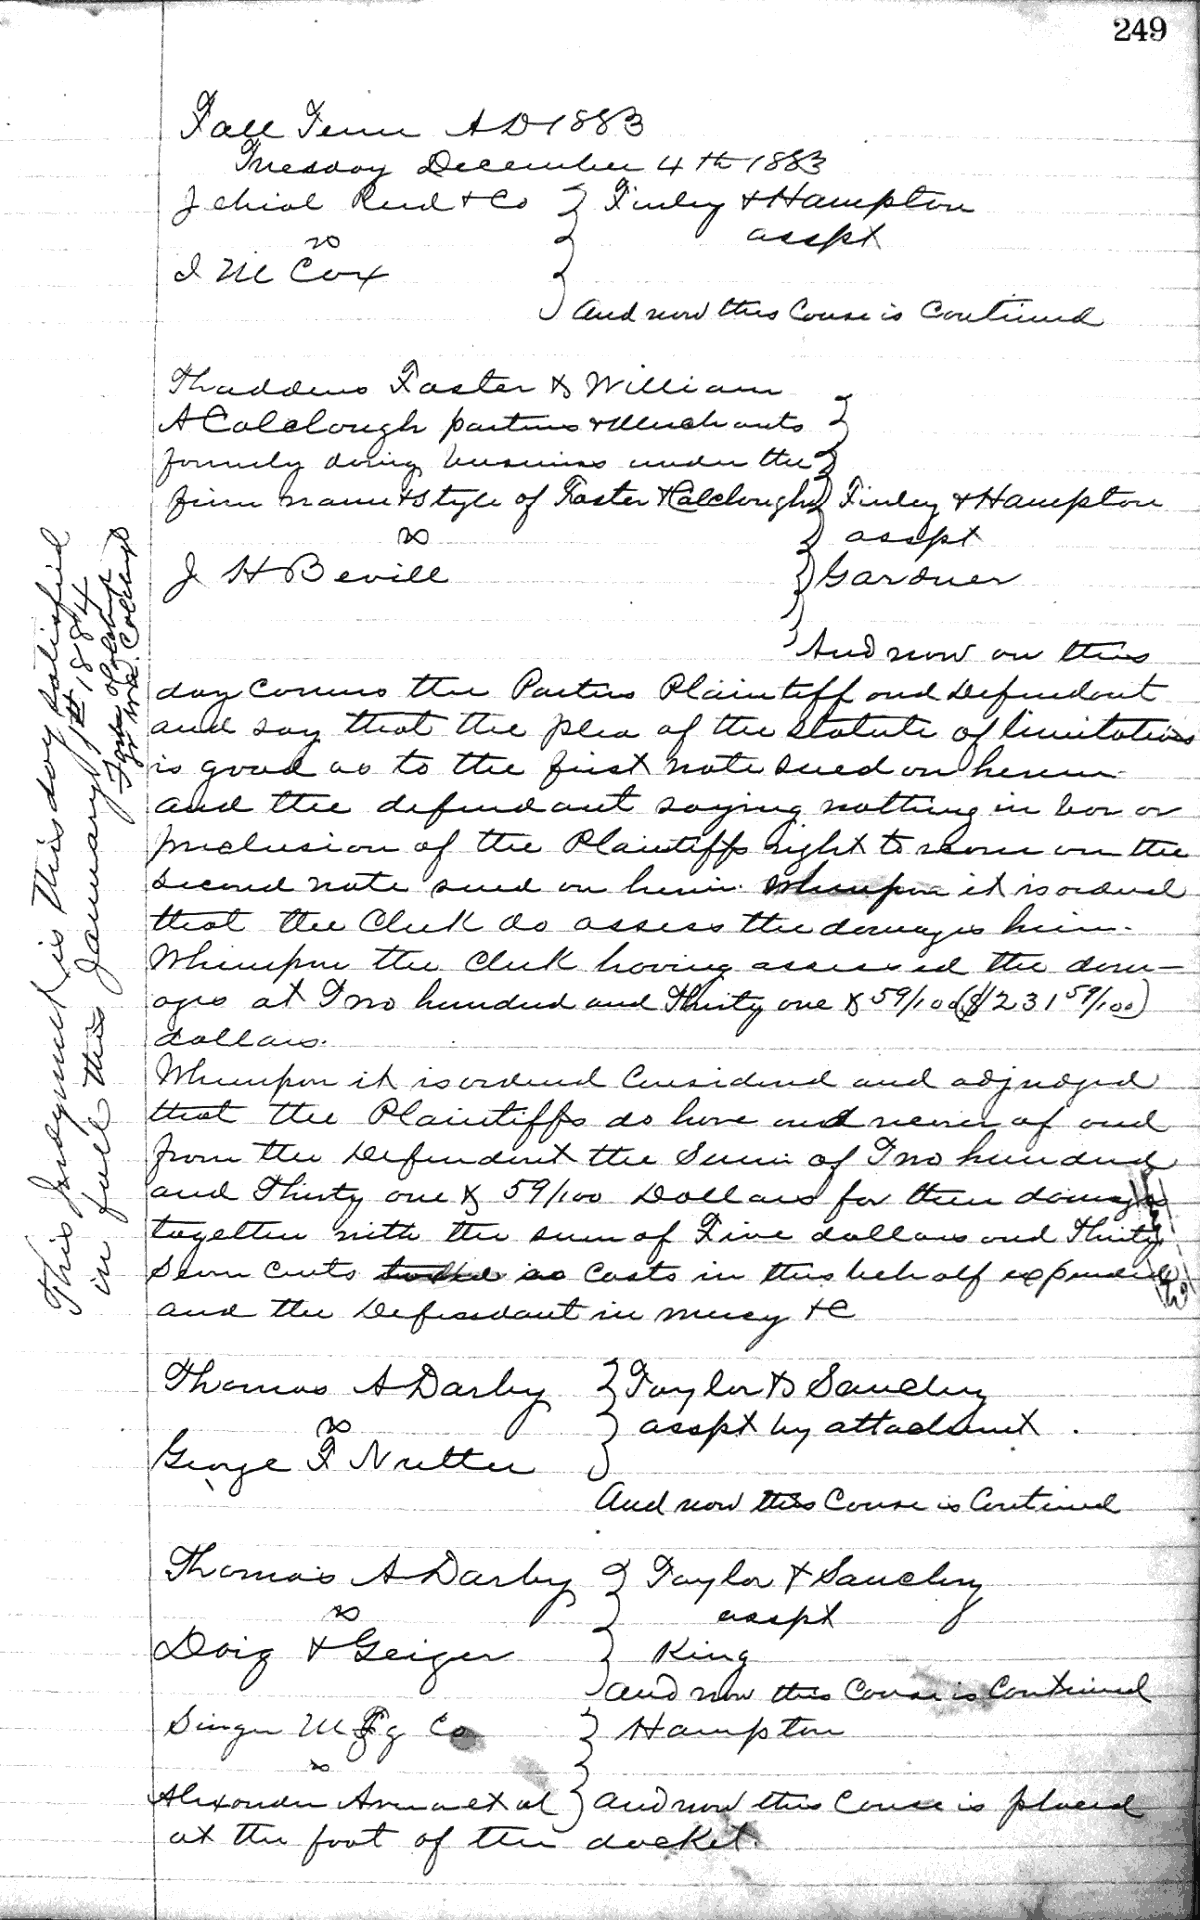 249
Fall Term A D 1883
Tuesday December 4th 1883
Jehial Reed & Co } Finley & Hampton
vs
asspt
I M Cox
And now this Cause is Continued
Thaddeus Foster & William
A Colclough partners & Merchants
formerly doing business under the
firm name & Style of Foster & Colclough } Finley & Hampton
vs
asspt
J H Bevill } Gardner
And now on this
day comes the Parties Plaintiff and Defendant
and say that the plea of the Statute of limitations
is good as to the first note sued on herein
and the defendant saying nothing in bar or
preclusion of the Plaintiffs right to recover on the
second note sued on herein. Whereupon it is ordered
that the Clerk do assess the damages herein.
Whereupon the Clerk having assessed the dam-
ages at Two hundred and Thirty one & 59/100 ($231 59/100)
dollars.
Whereupon it is ordered Considered and adjudged
that the Plaintiffs do have and recover of and
from the Defendant the Sum of Two hundred
and Thirty one & 59/100 Dollars for their damages
together with the sum of Five dollars and Thirty
Seven Cents as Costs in this behalf expended
and the Defendant in mercy &C
This Judgment is this day satisfied
in full this January 1st 1884
Thomas A Darby } Taylor & Sanchez
vs
asspt by attachment.
George F Nutter
And now this Cause is Continued
Thomas A Darby } Taylor & Sanchez
vs
asspt
Doig & Geiger } King
And now this Cause is Continued
Singer Mfg Co } Hampton
vs
Alexander et al } And now this Cause is placed
at the foot of the docket.